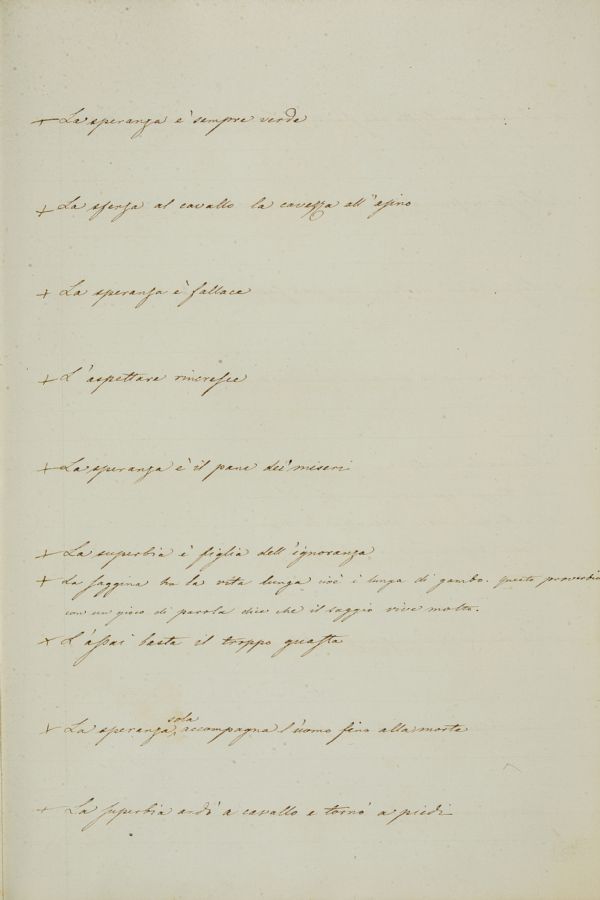 + La speranza è sempre verde
+ La sferza al cavallo la cavezza all'asino
+ La speranza è fallace
+ L'aspettare rincresce
+ La speranza è il pane dei miseri
+ La superbia è figlia dell'ignoranza
+ La saggina ha la vita lunga cioè è lunga di gambo. questo proverbio
con un gioco di parola dice che il saggio vive molto.
x L'assai basta il troppo guasta
sola
+ La speranza, accompagna l'uomo fino alla morte
+ La superbia andò a cavallo e tornò a piedi